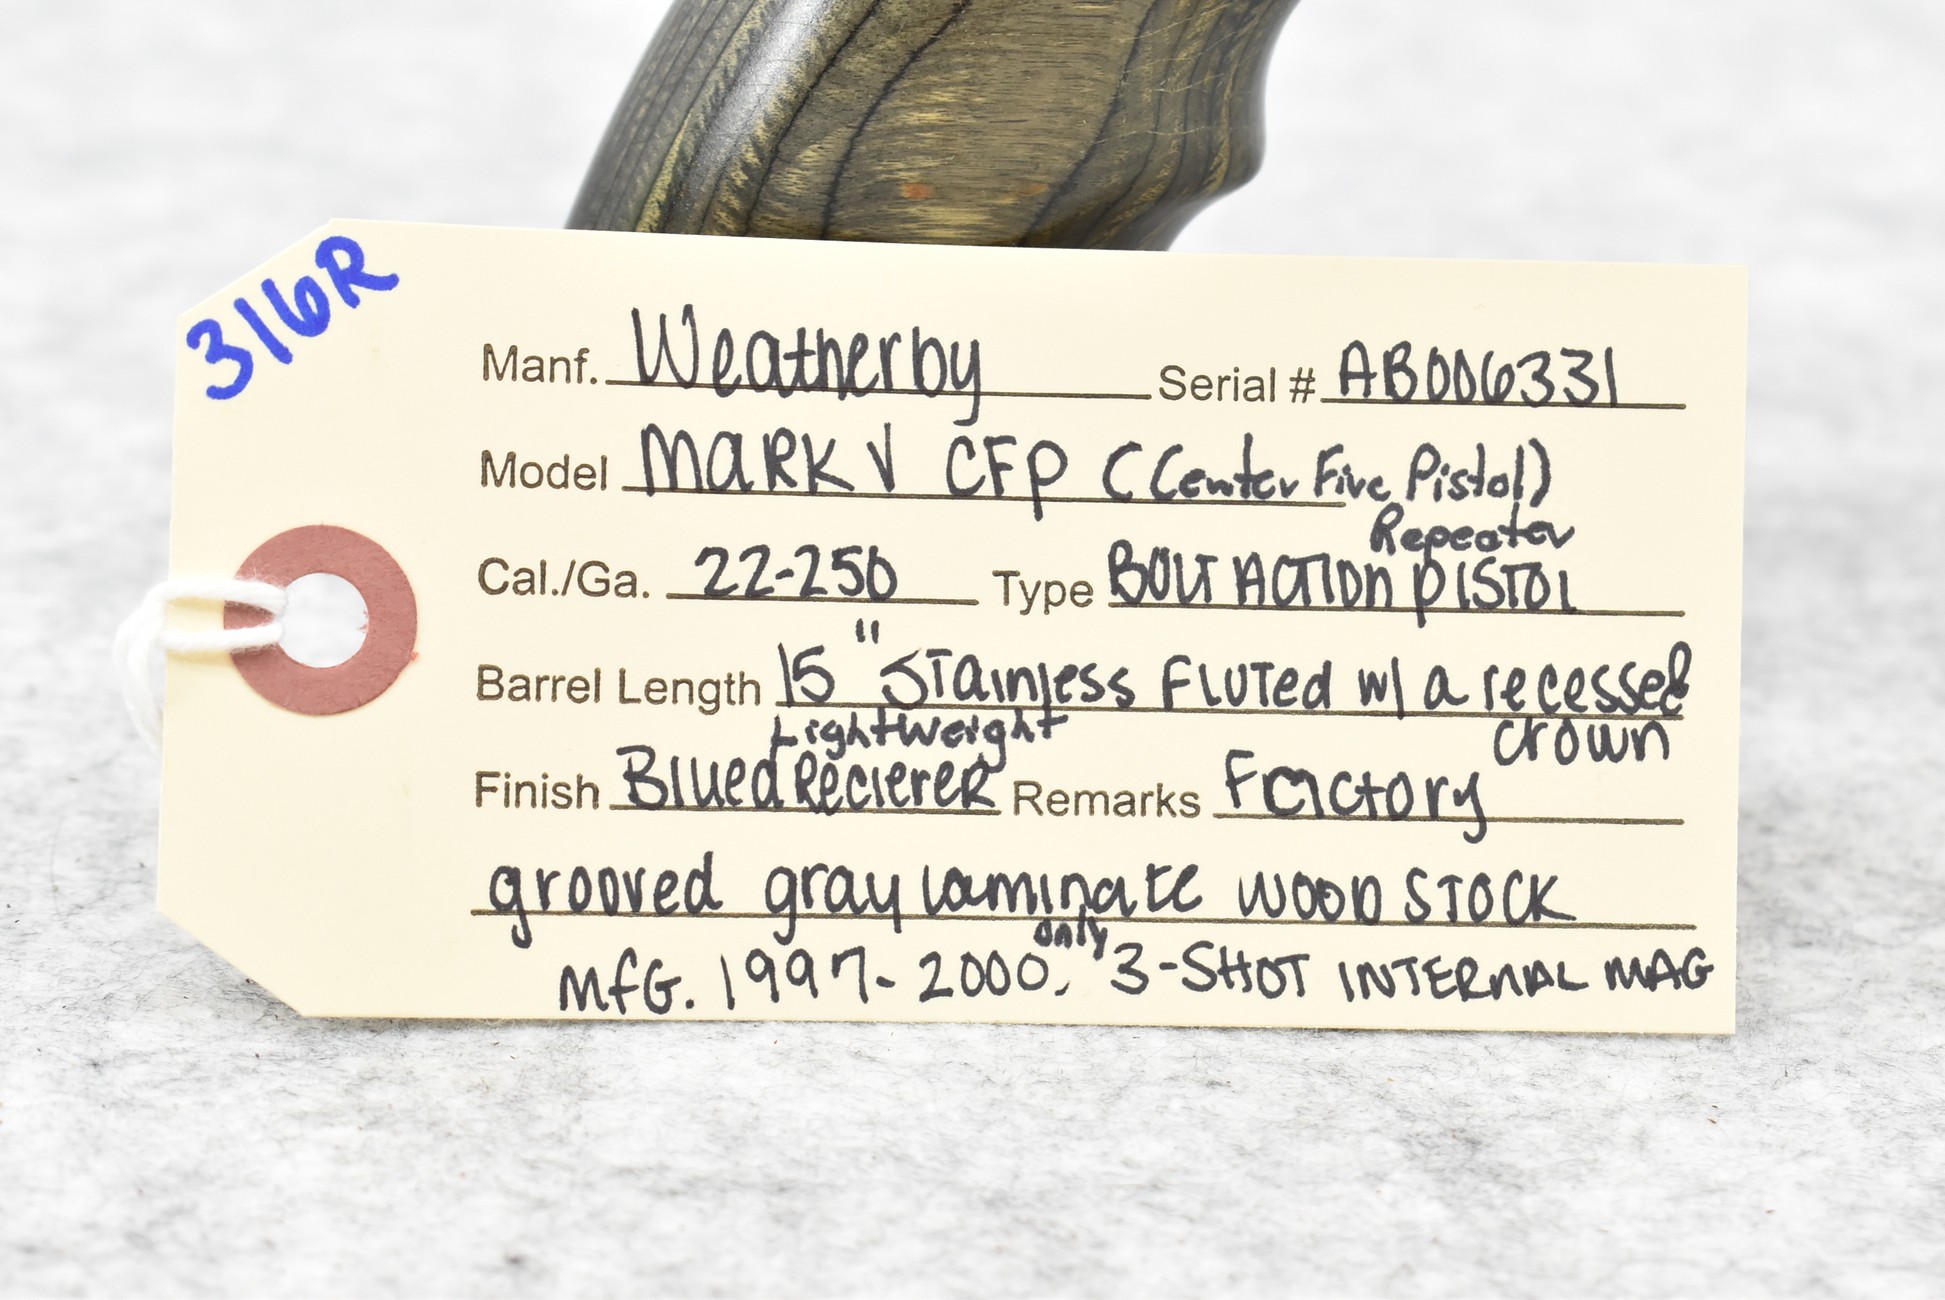 316R
Manf. Weatherby Serial # AB006331
Model MARK V CFP (Center Fire Pistol)
Repeater
Cal./Ga. 22-250 Type BOLT ACTION PISTOL
Barrel Length 15" Stainless Fluted w/ a recessed
crown
Lightweight
Finish Blued Reciever Remarks Factory
grooved gray laminate WOOD STOCK
only
MFG. 1997-2000, 3-SHOT INTERNAL MAG